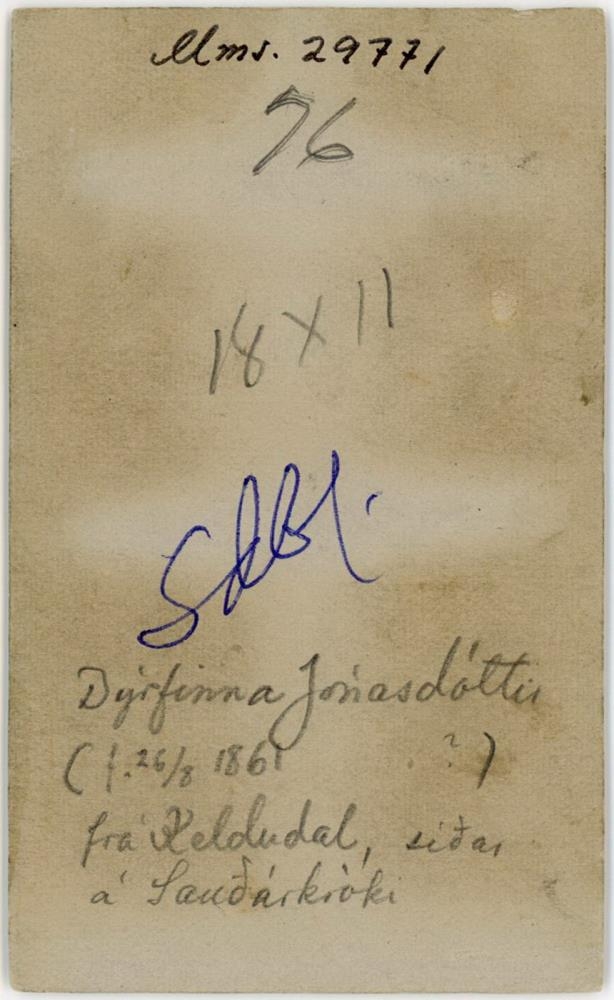 Mms. 29771
76
18 X 11
Dýrfinna Jónasdóttir
(f. 26/8 1861 ?)
frá Keldudal, síðar
á Sauðárkróki